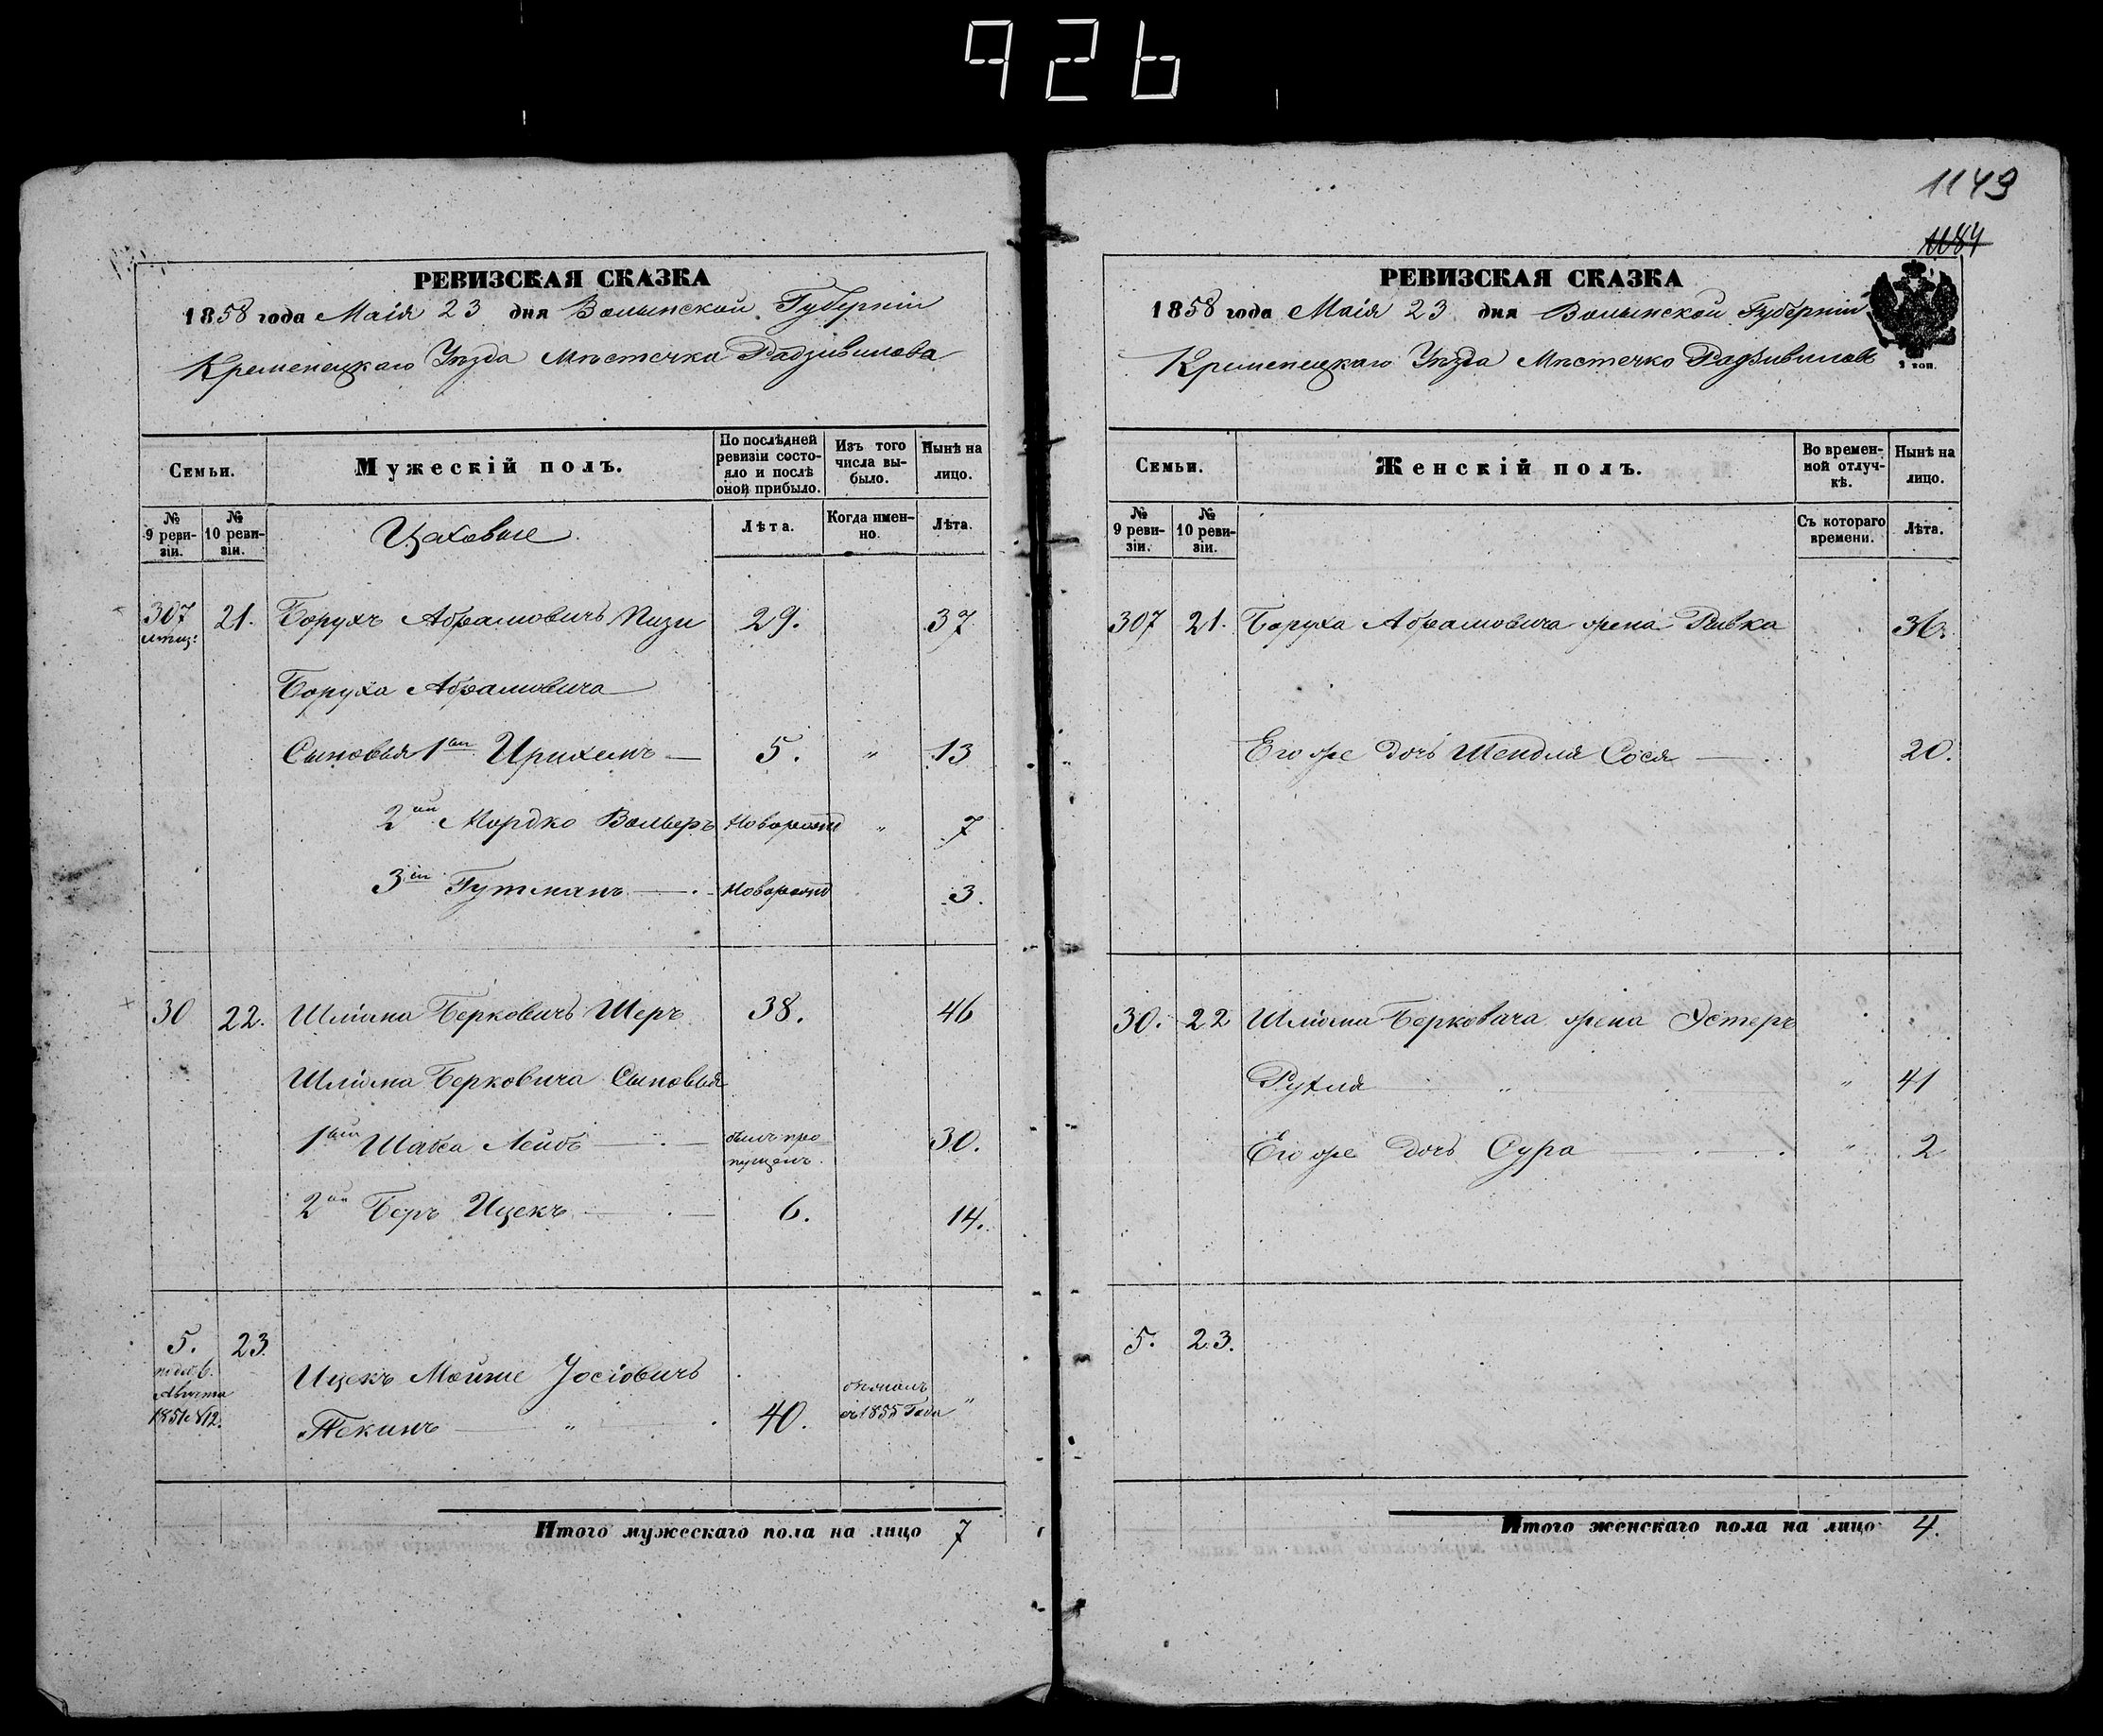 926
1149
1184
РЕВИЗСКАЯ СКАЗКА
1858 года Маія 23 дня Волынской Губерніи
Кременецкаго Уѣзда Мѣстечка Радзивилова
Семьи.
Мужескій полъ.
По послѣдней ревизіи состояло и послѣ оной прибыло.
Изъ того числа выбыло.
Нынѣ на лицо.
№ 9 ревизіи.
№ 10 ревизіи.
Цеховые
Лѣта.
Когда именно.
Лѣта.
307 21. Борухъ Абрамовичъ Пизи 29. 37
Боруха Абрамовича
Сыновья 1ый Ирихемъ 5. " 13
2ой Мордко Вольверъ Новорожд " 7
3ій Гутманъ Новорожд 3.
30 22. Шліома Берковичъ Шеръ 38. 46
Шліома Берковича Сыновья
1ый Шака Лейбъ былъ пропущенъ. 30.
2ой Беръ Ицекъ 6. 14.
5. 23.
Августа
1851 №12.
Ицекъ Мойше Іосіовичъ
40. 1855 Года "
Итого мужескаго пола на лицо 7
РЕВИЗСКАЯ СКАЗКА
1858 года Маія 23 дня Волынской Губерніи
Кременецкаго Уѣзда Мѣстечко Радзивиловъ
Семьи.
Женскій полъ.
Во временной отлучкѣ.
Нынѣ на лицо.
№ 9 ревизіи.
№ 10 ревизіи.
Съ котораго времени.
Лѣта.
307 21. Боруха Абрамовича жена Ривка 36.
Его же дочь Шендля Сося 20.
30. 22 Шліома Берковича жена Эстеръ
Рухля " " 41
Его же дочь Сура " 2
5. 23.
Итого женскаго пола на лицо 4.